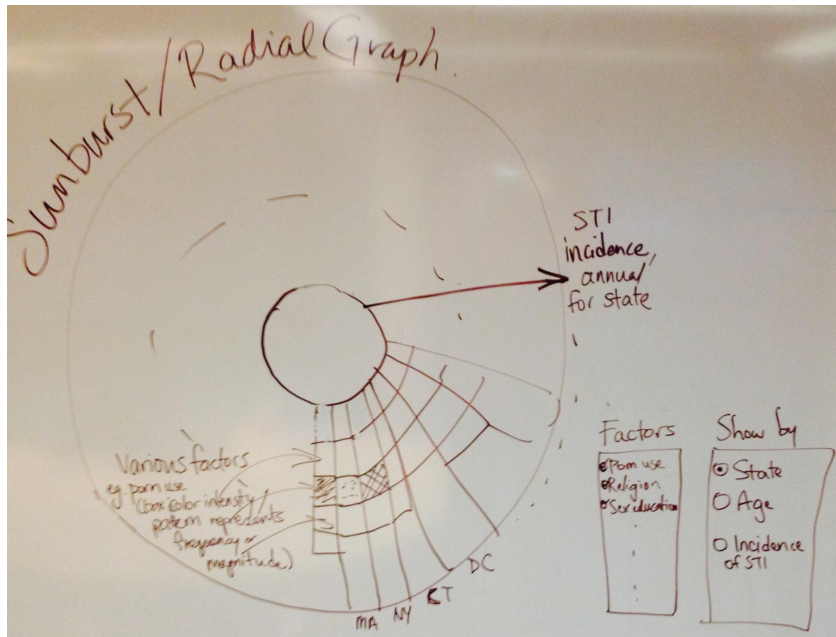 Sunburst/Radial Graph
STI
incidence,
annual
for state
Various factors
eg porn use
(box color intensity/
pattern represents
frequency or
magnitude)
MA
NY
CT
DC
Factors
Porn use
Religion
Sex education
Show by
State
Age
Incidence
of STI